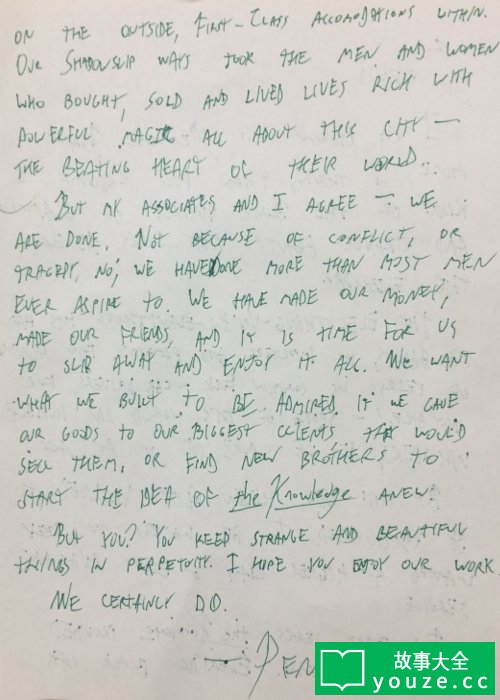 ON THE OUTSIDE, FIRST-CLASS ACCOMODATIONS WITHIN.
OUR SHADOWSLIP WAYS TOOK THE MEN AND WOMEN
WHO BOUGHT, SOLD AND LIVED LIVES RICH WITH
POWERFUL MAGIC ALL ABOUT THIS CITY —
THE BEATING HEART OF THEIR WORLD..
BUT MY ASSOCIATES AND I AGREE — WE
ARE DONE. NOT BECAUSE OF CONFLICT, OR
TRAGEDY, NO; WE HAVE DONE MORE THAN MOST MEN
EVER ASPIRE TO. WE HAVE MADE OUR MONEY,
MADE OUR FRIENDS, AND IT IS TIME FOR US
TO SLIP AWAY AND ENJOY IT ALL. WE WANT
WHAT WE BUILT TO BE ADMIRED. IF WE GAVE
OUR GOODS TO OUR BIGGEST CLIENTS THEY WOULD
SELL THEM, OR FIND NEW BROTHERS TO
START THE IDEA OF the Knowledge ANEW.
BUT YOU? YOU KEEP STRANGE AND BEAUTIFUL
THINGS IN PERPETUITY. I HOPE YOU ENJOY OUR WORK.
WE CERTAINLY DO.
故事大全
youze.cc